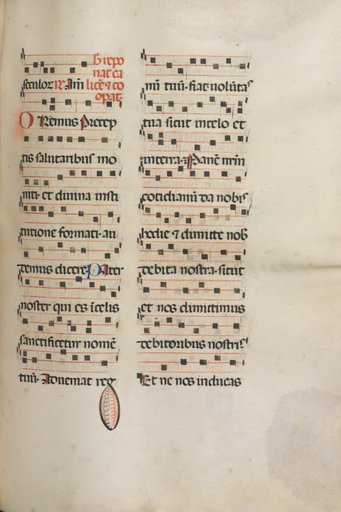 hic repo
nat ca
seculor R Am lice & co
opat.
Oremus Precep
tis salutaribus mo
niti. et diuina insti
tutione formati. au
demus dicere Pater
noster qui es in celis
sanctificetur nomē
tuū. Adueniat reg
nū tuū. fiat volūta
tua sicut in celo et
in terra. Panē nrm
cotidianū da nobis
hodie & dimitte nob
debita nostra. sicut
et nos dimittimus
debitoribus nostris
Et ne nos inducas